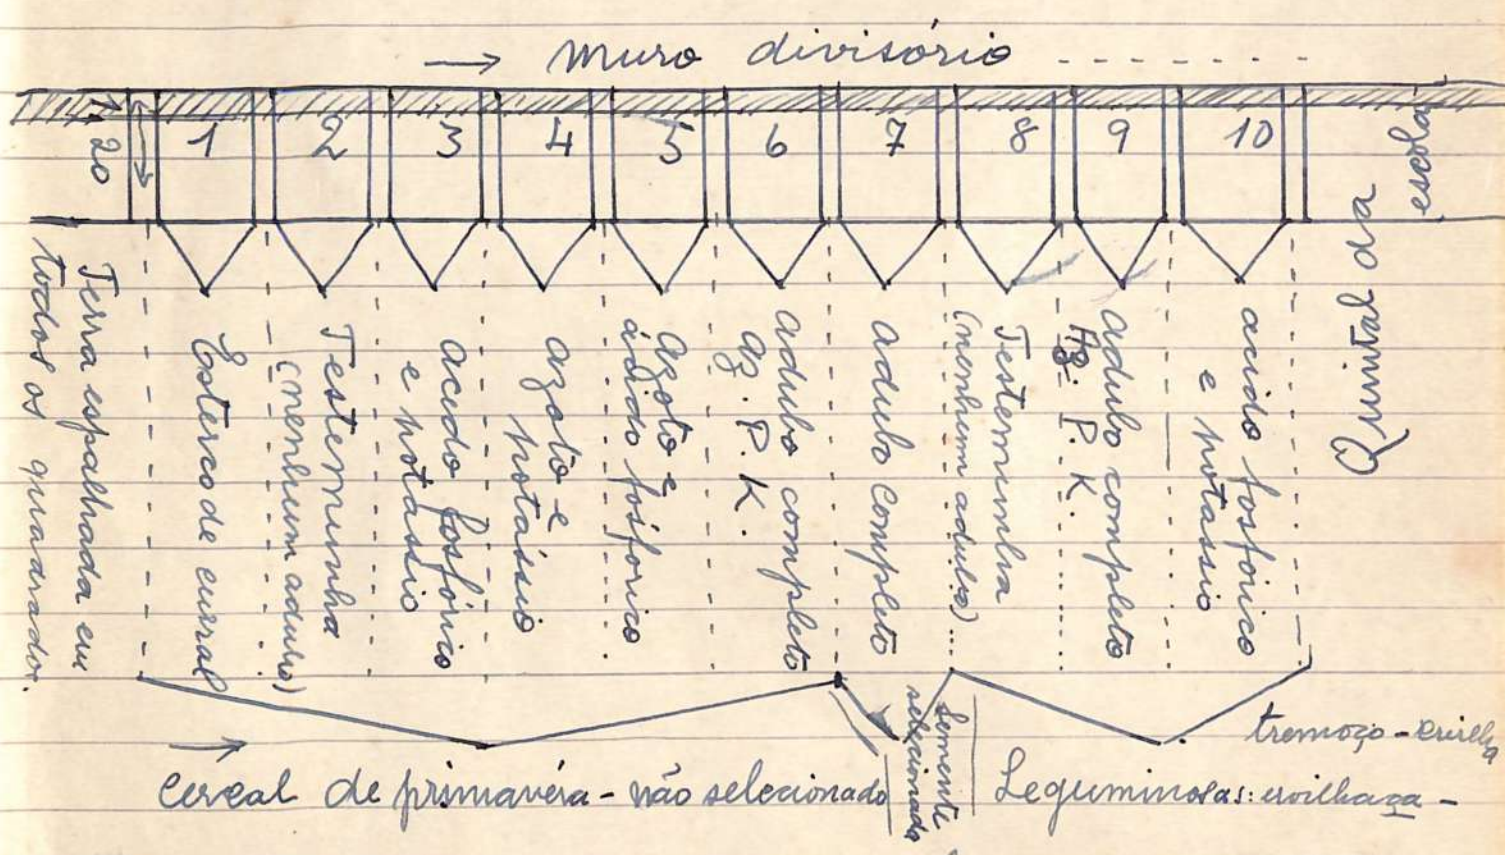 → Muro divisório - - - - - - - -
20
1 2 3 4 5 6 7 8 9 10
Quintal da
escola
Terra espalhada em
todos os quadrados.
Esterco de curral
Testemunha
(nenhum adubo)
acido fosfórico
e potássio
azoto e
potássio
azoto e
ácido fosforico
adubo completo
az. P. K.
adubo completo
Testemunha
(nenhum adubo)...
adubo completo
Az. P. K.
acido fosforico
e potassio
→
cereal de primavéra - não selecionado
Semente
selecionada
Leguminosas: ervilhaça -
tremoço - ervilha